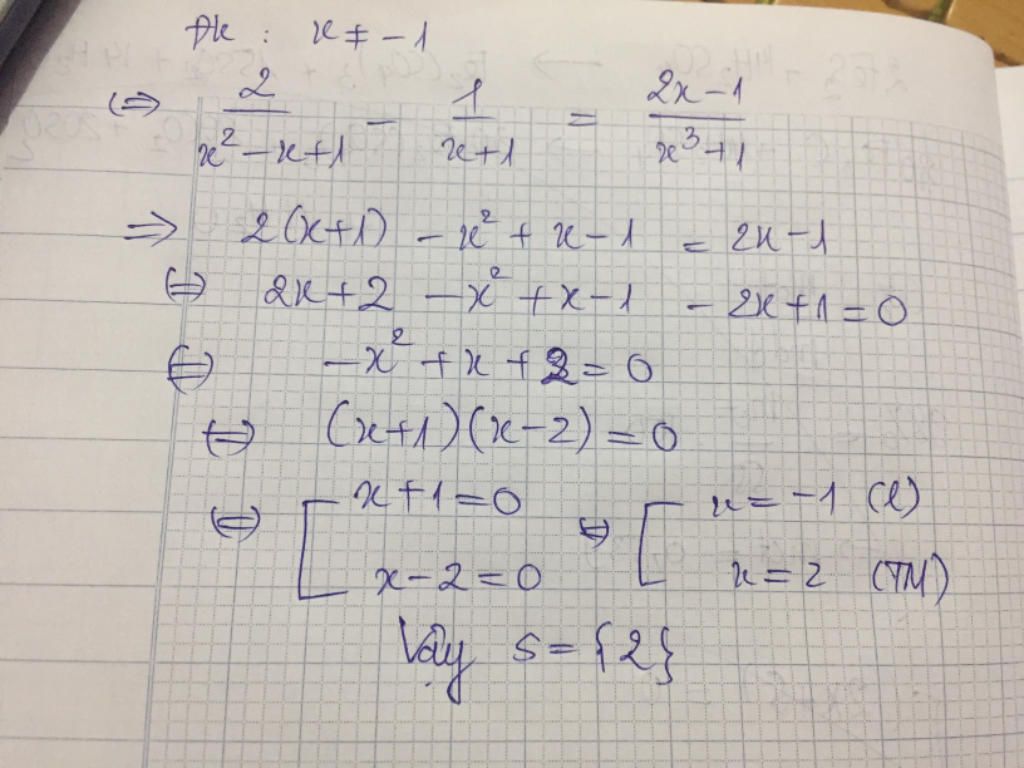 Đk : x ≠ -1
⇔ 2/(x² - x + 1) - 1/(x + 1) = (2x - 1)/(x³ + 1)
⇒ 2(x+1) - x² + x - 1 = 2x - 1
⇔ 2x + 2 - x² + x - 1 - 2x + 1 = 0
⇔ -x² + x + 2 = 0
⇔ (x+1)(x-2) = 0
⇔ [ x + 1 = 0 ⇔ [ x = -1 (l)
x - 2 = 0 x = 2 (TM)
Vậy S = {2}